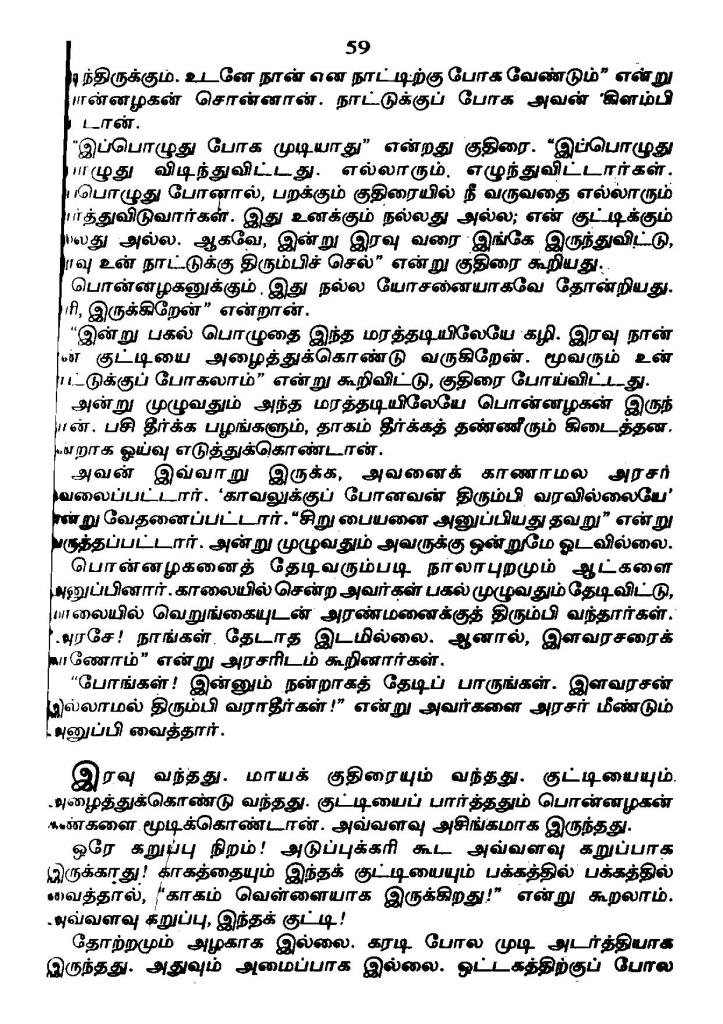 59
ந்திருக்கும். உடனே நான் என நாட்டிற்கு போக வேண்டும்" என்று
ன்னழகன் சொன்னான். நாட்டுக்குப் போக அவன் கிளம்பி
டான்.
"இப்பொழுது போக முடியாது" என்றது குதிரை. "இப்பொழுது
ழுது விடிந்துவிட்டது. எல்லாரும் எழுந்துவிட்டார்கள்.
பொழுது போனால், பறக்கும் குதிரையில் நீ வருவதை எல்லாரும்
ர்த்துவிடுவார்கள். இது உனக்கும் நல்லது அல்ல; என் குட்டிக்கும்
லது அல்ல. ஆகவே, இன்று இரவு வரை இங்கே இருந்துவிட்டு,
ரவு உன் நாட்டுக்கு திரும்பிச் செல்" என்று குதிரை கூறியது.
பொன்னழகனுக்கும் இது நல்ல யோசனையாகவே தோன்றியது.
ரி, இருக்கிறேன்" என்றான்.
"இன்று பகல் பொழுதை இந்த மரத்தடியிலேயே கழி. இரவு நான்
ன் குட்டியை அழைத்துக்கொண்டு வருகிறேன். மூவரும் உன்
ட்டுக்குப் போகலாம்" என்று கூறிவிட்டு, குதிரை போய்விட்டது.
அன்று முழுவதும் அந்த மரத்தடியிலேயே பொன்னழகன் இருந்
ான். பசி தீர்க்க பழங்களும், தாகம் தீர்க்கத் தண்ணீரும் கிடைத்தன.
றாக ஓய்வு எடுத்துக்கொண்டான்.
அவன் இவ்வாறு இருக்க, அவனைக் காணாமல அரசர்
வலைப்பட்டார். 'காவலுக்குப் போனவன் திரும்பி வரவில்லையே'
என்று வேதனைப்பட்டார். "சிறு பையனை அனுப்பியது தவறு" என்று
வருத்தப்பட்டார். அன்று முழுவதும் அவருக்கு ஒன்றுமே ஓடவில்லை.
பொன்னழகனைத் தேடிவரும்படி நாலாபுறமும் ஆட்களை
அனுப்பினார். காலையில் சென்ற அவர்கள் பகல் முழுவதும் தேடிவிட்டு,
மாலையில் வெறுங்கையுடன் அரண்மனைக்குத் திரும்பி வந்தார்கள்.
"அரசே! நாங்கள் தேடாத இடமில்லை. ஆனால், இளவரசரைக்
காணோம்" என்று அரசரிடம் கூறினார்கள்.
"போங்கள்! இன்னும் நன்றாகத் தேடிப் பாருங்கள். இளவரசன்
இல்லாமல் திரும்பி வராதீர்கள்!" என்று அவர்களை அரசர் மீண்டும்
அனுப்பி வைத்தார்.
இரவு வந்தது. மாயக் குதிரையும் வந்தது. குட்டியையும்
அழைத்துக்கொண்டு வந்தது. குட்டியைப் பார்த்ததும் பொன்னழகன்
கண்களை மூடிக்கொண்டான். அவ்வளவு அசிங்கமாக இருந்தது.
ஒரே கறுப்பு நிறம்! அடுப்புக்கரி கூட அவ்வளவு கறுப்பாக
இருக்காது! காகத்தையும் இந்தக் குட்டியையும் பக்கத்தில் பக்கத்தில்
வைத்தால், "காகம் வெள்ளையாக இருக்கிறது!" என்று கூறலாம்.
அவ்வளவு கறுப்பு, இந்தக் குட்டி!
தோற்றமும் அழகாக இல்லை. கரடி போல முடி அடர்த்தியாக
இருந்தது. அதுவும் அமைப்பாக இல்லை. ஒட்டகத்திற்குப் போல